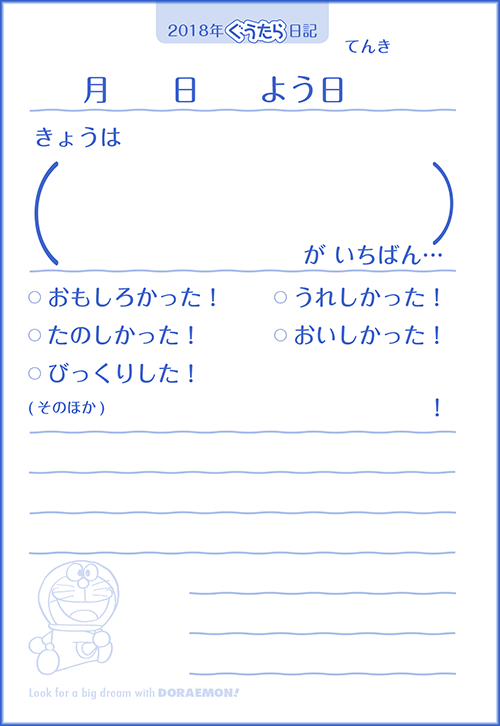 2018年ぐうたら日記
てんき
月 日 よう日
きょうは
( )
が いちばん…
○ おもしろかった！ ○ うれしかった！
○ たのしかった！ ○ おいしかった！
○ びっくりした！
(そのほか) ！
Look for a big dream with DORAEMON!